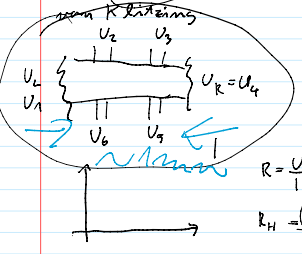 von Klitzing
U₂ U₃
U_L
U₁
U_R = U₄
U₆ U₅
R = U
I
R_H =